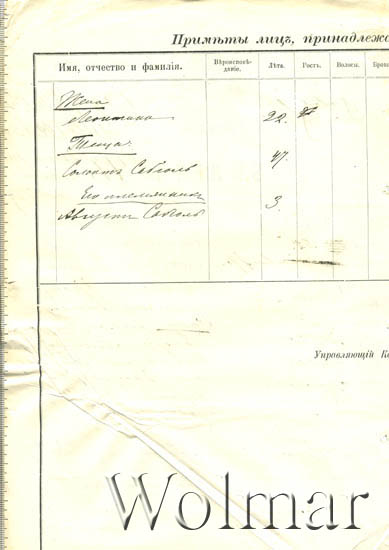 Примѣты лицъ, принадлежа
Имя, отчество и фамилія. Вѣроисповѣ-
данiе. Лѣта. Ростъ. Волосы. Брови
Жена
Леонтина 22.
Теща
47.
Соболь
Его племянник
Августъ Соболь 3
Управляющій К
Wolmar